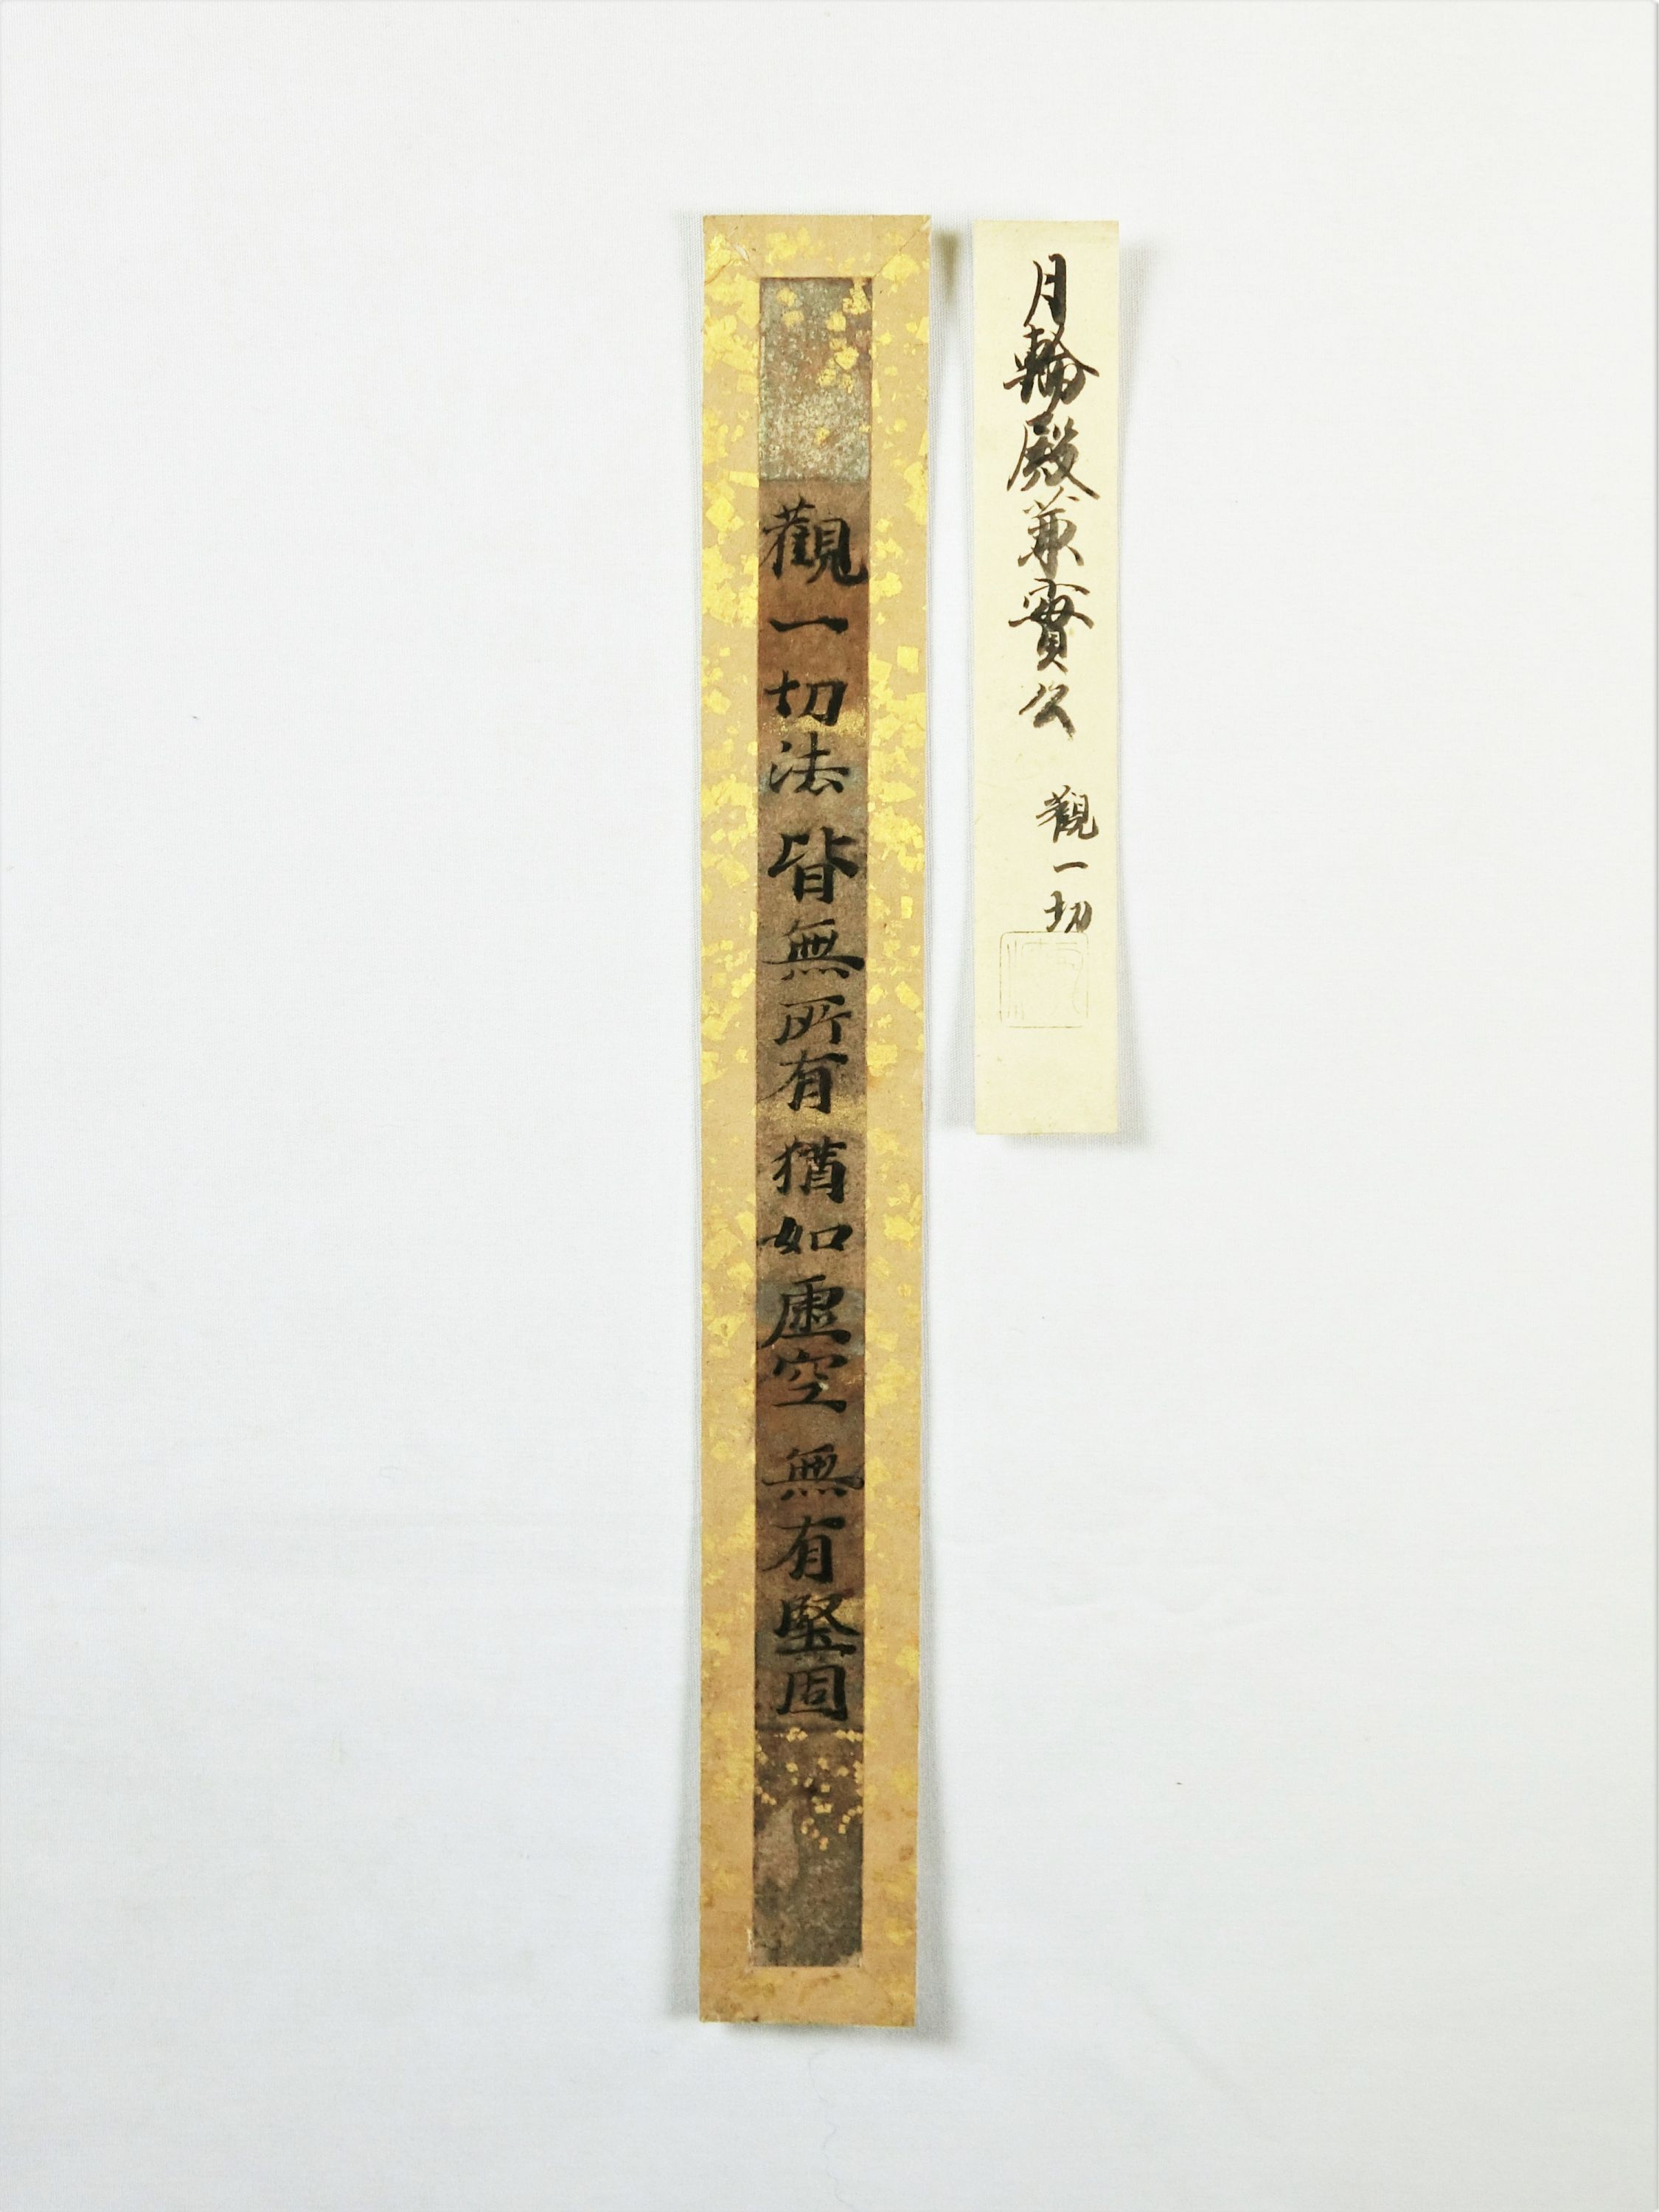 月輪殿兼實公 觀一切
觀一切法皆無所有猶如虛空無有堅固